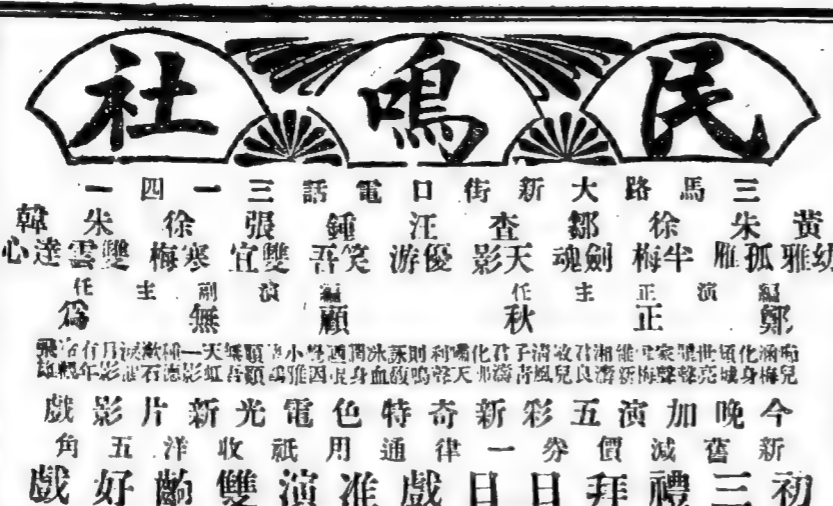 民鳴社
三馬路大新街口電話三一四一
黃幼雅 朱孤雁 徐半梅 鄒劍魂 查天影 汪優游 鍾笑吾 張雙宜 徐寒梅 朱雙雲 韓達心
編演正主任 編演副主任
鄭正秋 顧無爲
今晚加演五彩新奇特色電光新片影戲
新舊減價券一律通用祇收洋五角
初三禮拜日日戲准演雙齣好戲